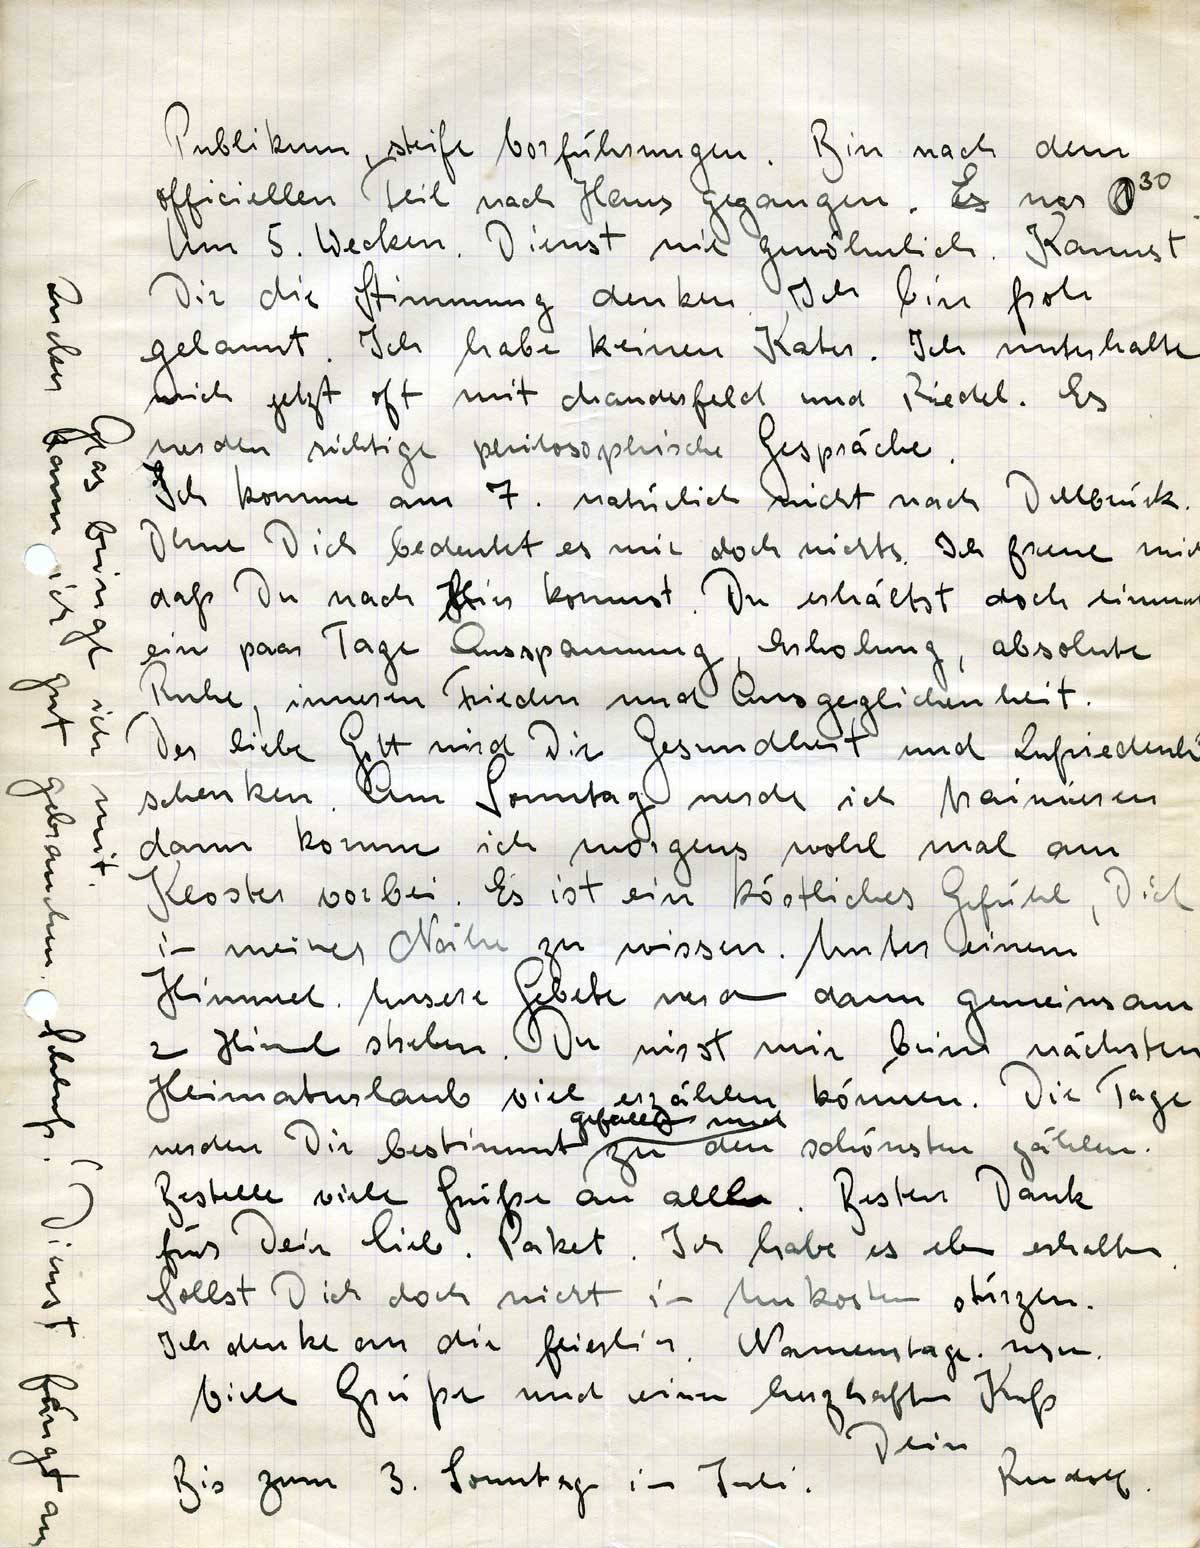 Publikum, steife Vorführungen. Bin nach dem
officiellen Teil nach Haus gegangen. Es war 0 30
Um 5. Wecken. Dienst wie gewöhnlich. Kannst
Dir die Stimmung denken. Ich bin froh
gelaunt. Ich habe keinen Kater. Ich unterhalte
mich jetzt oft mit und Riedel. Es
werden richtige philosophische Gespräche.
Ich komme am 7. natürlich nicht nach Dellbrück.
Ohne Dich bedeutet es mir doch nichts. Ich freue mich
daß Du nach hier kommst. Du erhältst doch einmal
ein paar Tage Ausspannung, Erholung, absolute
Ruhe, inneren Frieden und Ausgeglichenheit.
Der liebe Gott wird Dir Gesundheit und Zufriedenh
schenken. Am Sonntag werde ich trainieren
dann komm ich morgens wohl mal am
Kloster vorbei. Es ist ein köstliches Gefühl, Dich
in meiner Nähe zu wissen. Unter einem
Himmel. Unsere Gebete werden dann gemeinsam
z Himmel streben. Du wirst mir beim nächsten
Heimaturlaub viel erzählen können. Die Tage
gefallen und
werden Dir bestimmt zu den schönsten zählen.
Bestelle viele Grüße an alle. Besten Dank
für Dein lieb. Paket. Ich habe es eben erhalten.
Sollst Dich doch nicht in Unkosten stürzen.
Ich denke an die feierlich. Namenstage. usw.
Viele Grüße und einen herzhaften Kuß
Dein
Bis zum 3. Sonntag in Juli. Rudolf.
Glas bringe ich mit.
Zucker kann ich gut gebrauchen. Schluß! (Dienst fängt an